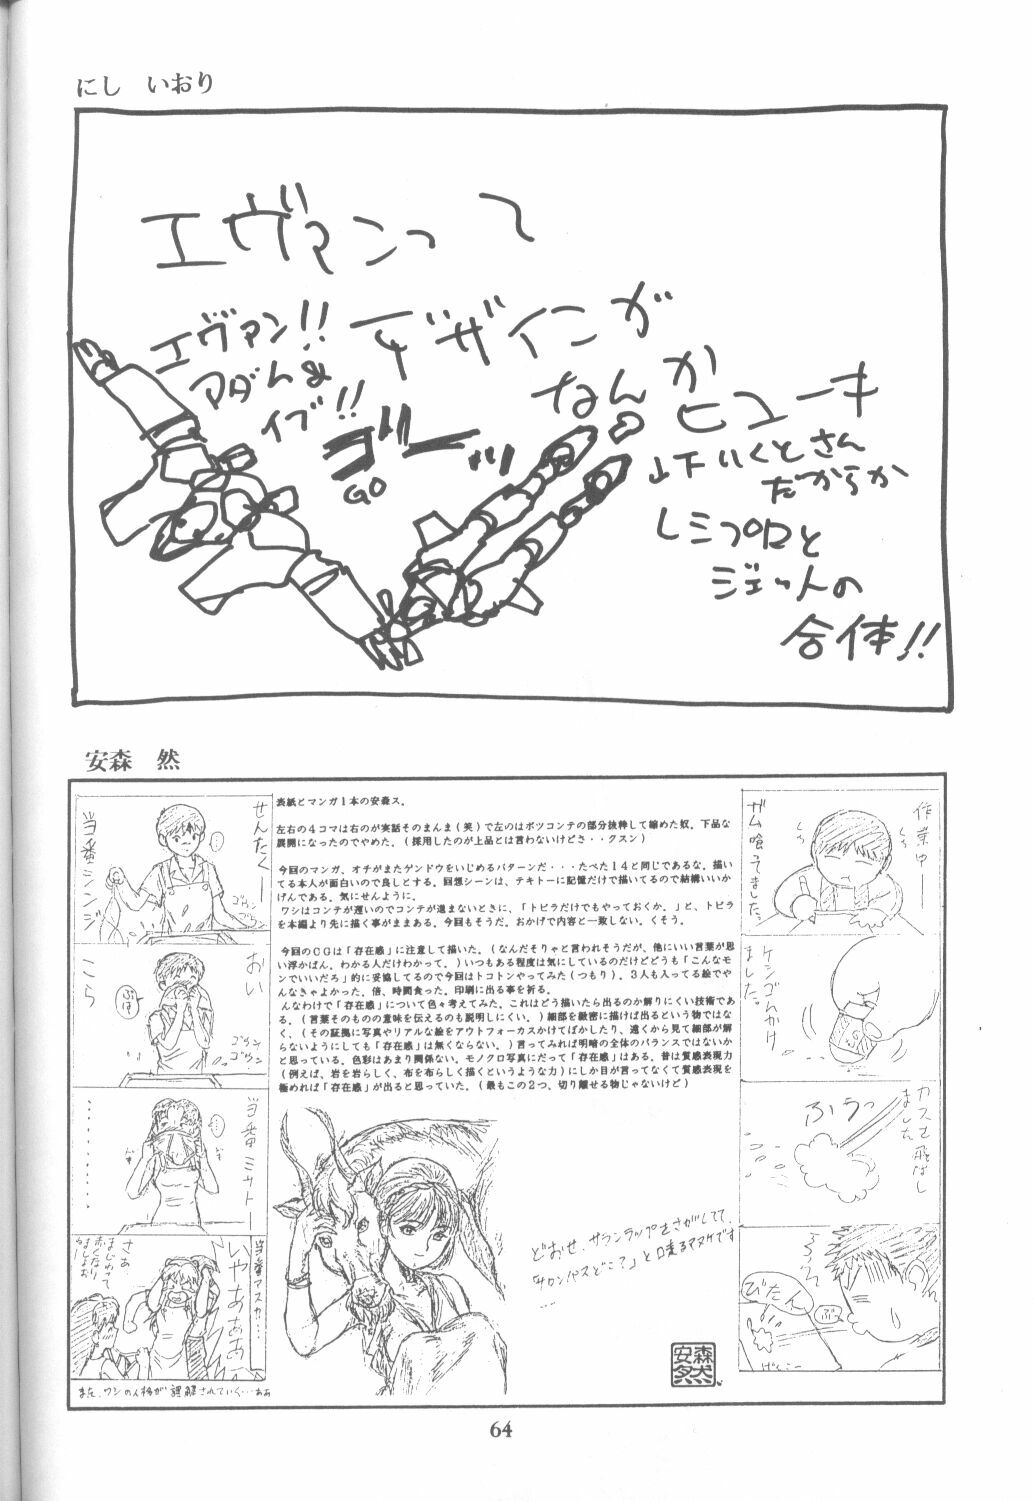 にし　いおり
エヴァンって
デザインが
なんか
ヒューキ
山下いくとさん
だからか
レシプロと
ジェットの
合体!!
エヴァン!!
アダム&
イブ!!
ゴーッ
GO
安森　然
表紙とマンガ１本の安森ス。
左右の４コマは右のが実話そのまんま（笑）で左のはボツコンテの部分抜粋して縮めた奴。下品な
展開になったのでやめた。（採用したのが上品とは言わないけどさ・・クスン）
今回のマンガ、オチがまたゲンドウをいじめるパターンだ・・・たべた１４と同じであるな。描い
てる本人が面白いので良しとする。回想シーンは、テキトーに記憶だけで描いてるので結構いいか
げんである。気にせんように。
ワシはコンテが遅いのでコンテが進まないときに、「トビラだけでもやっておくか。」と、トビラ
を本編より先に描く事がままある。今回もそうだ。おかげで内容と一致しない。くそう。
今回のＣＧは「存在感」に注意して描いた。（なんだそりゃと言われそうだが、他にいい言葉が思
い浮かばん。わかる人だけわかって。）いつもある程度は気にしているのだけどどうも「こんなモ
ンでいいだろ」的に妥協してるので今回はトコトンやってみた（つもり）。３人も入ってる絵でや
んなきゃよかった。倍、時間食った。印刷に出る事を祈る。
んなわけで「存在感」について色々考えてみた。これはどう描いたら出るのか解りにくい技術であ
る。（言葉そのものの意味を伝えるのも説明しにくい。）細部を緻密に描けば出るという物ではな
く、（その証拠に写真やリアルな絵をアウトフォーカスかけてぼかしたり、遠くから見て細部が解
らないようにしても「存在感」は無くならない。）言ってみれば明暗の全体のバランスではないか
と思っている。色彩はあまり関係ない。モノクロ写真にだって「存在感」はある。昔は質感表現力
（例えば、岩を岩らしく、布を布らしく描くというような力）にしか目が言ってなくて質感表現を
極めれば「存在感」が出ると思っていた。（最もこの２つ、切り離せる物じゃないけど）
作業中
ガム喰ってました。
ケシゴムかけ
ました。
カスを飛ばし
ました
ふうっ
ううっ
ぷっ
びたん
げんこー
せんたくー
当番シンジ
ゴウンゴウン
おい
こら
ゴウンゴウン
当番ミサトー
・・・・・・・・
当番アスカ…
いやぁぁぁ
さあ
まじわって
赤くなり
ましょお
また、ワシの人格が誤解されていく…ああ
どおせ、サランラップをさがしてて、
「サロンパスどこ?」と口走るアヌケです
…
安森然
64